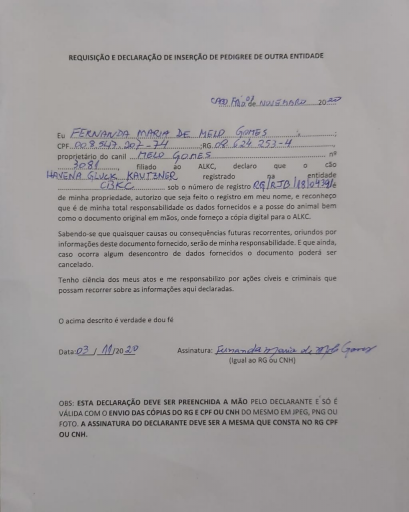 REQUISIÇÃO E DECLARAÇÃO DE INSERÇÃO DE PEDIGREE DE OUTRA ENTIDADE
CABO FRIO, 01 de NOVEMBRO 2020
Eu FERNANDA MARIA DE MELO GOMES
CPF 008.547.207-74 ;RG 08.624.253-4
proprietário do canil MELO GOMES nº
3081, filiado ao ALKC, declaro que o cão
HAVENA GLUCK KAUTZNER registrado na entidade
CBKC sob o número de registro RG/RJD/18/04391 e
de minha propriedade, autorizo que seja feito o registro em meu nome, e reconheço
que é de minha total responsabilidade os dados fornecidos e a posse do animal bem
como o documento original em mãos, onde forneço a cópia digital para o ALKC.
Sabendo-se que quaisquer causas ou consequências futuras recorrentes, oriundos por
informações deste documento fornecido, serão de minha responsabilidade. E que ainda,
caso ocorra algum desencontro de dados fornecidos o documento poderá ser
cancelado.
Tenho ciência dos meus atos e me responsabilizo por ações cíveis e criminais que
possam recorrer sobre as informações aqui declaradas.
O acima descrito é verdade e dou fé
Data: 03 / 11 /2020 Assinatura: Fernanda Maria de Melo Gomes
(Igual ao RG ou CNH)
OBS: ESTA DECLARAÇÃO DEVE SER PREENCHIDA A MÃO PELO DECLARANTE E SÓ É
VÁLIDA COM O ENVIO DAS CÓPIAS DO RG E CPF OU CNH DO MESMO EM JPEG, PNG OU
FOTO. A ASSINATURA DO DECLARANTE DEVE SER A MESMA QUE CONSTA NO RG CPF
OU CNH.